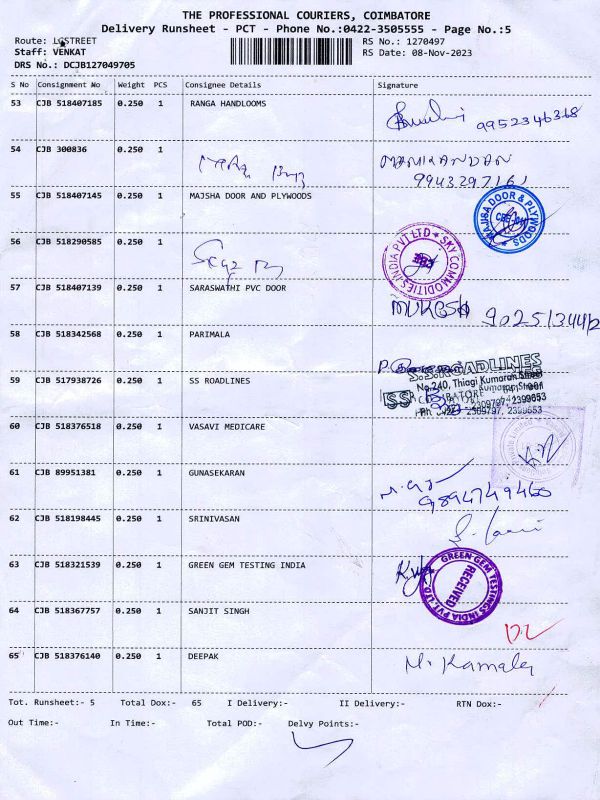 THE PROFESSIONAL COURIERS, COIMBATORE
Delivery Runsheet - PCT - Phone No.:0422-3505555 - Page No.:5
Route: LGSTREET
RS No.: 1270497
Staff: VENKAT
RS Date: 08-Nov-2023
DRS No.: DCJB127049705
S No Consignment No Weight PCS Consignee Details Signature
53 CJB 518407185 0.250 1 RANGA HANDLOOMS
9952346368
54 CJB 300836 0.250 1 MANIKANDAN
9943297161
55 CJB 518407145 0.250 1 MAJSHA DOOR AND PLYWOODS
MAJSA DOOR & PLYWOODS
56 CJB 518290585 0.250 1
SKY COMMODITIES INDIA PVT LTD
57 CJB 518407139 0.250 1 SARASWATHI PVC DOOR
MUKESH
58 CJB 518342568 0.250 1 PARIMALA
59 CJB 517938726 0.250 1 SS ROADLINES
S.S. ROADLINES
No.240, Thiagi Kumaran Street
SS
2309797, 2399653
60 CJB 518376518 0.250 1 VASAVI MEDICARE
61 CJB 89951381 0.250 1 GUNASEKARAN
9894749460
62 CJB 518198445 0.250 1 SRINIVASAN
63 CJB 518321539 0.250 1 GREEN GEM TESTING INDIA
GREEN GEM TESTINGS INDIA PVT LTD
RECEIVED
64 CJB 518367757 0.250 1 SANJIT SINGH
65 CJB 518376140 0.250 1 DEEPAK
Tot. Runsheet:- 5 Total Dox:- 65 I Delivery:- II Delivery:- RTN Dox:-
Out Time:- In Time:- Total POD:- Delvy Points:-